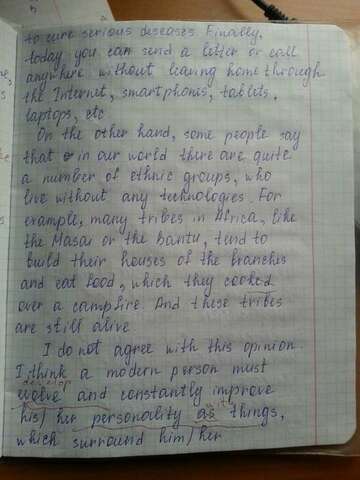 to cure serious diseases. Finally,
today you can send a letter or call
anywhere without leaving home through
the Internet, smartphones, tablets,
laptops, etc
On the other hand, some people say
that in our world there are quite
a number of ethnic groups, who
live without any technologies. For
example, many tribes in Africa, like
the Masai or the Bantu, tend to
build their houses of the branches
and eat food, which they cooked
over a campfire. And these tribes
are still alive
I do not agree with this opinion.
I think a modern person must
develop
evolve and constantly improve
his/her personality as things,
which surround him/her